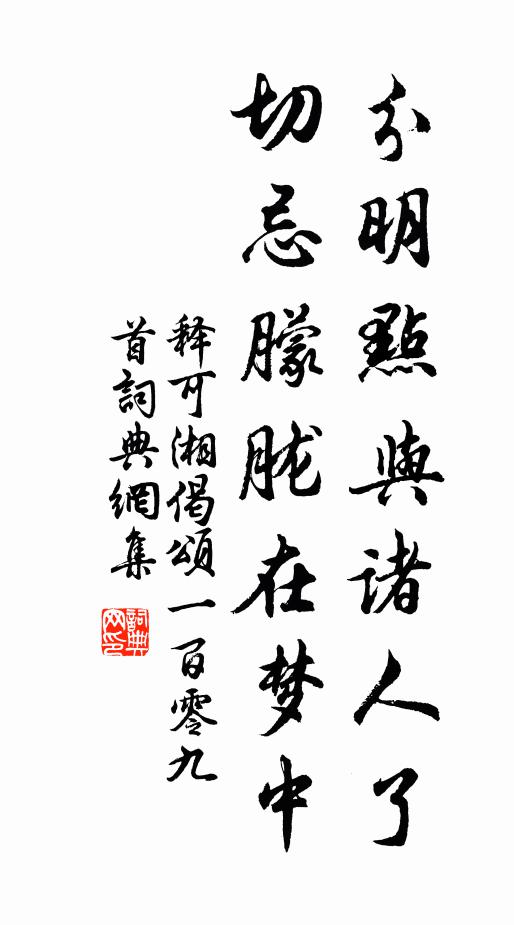 分明點與諸人了
切忌朦胧在梦中
释可湘偈頌一百零九
首詞典網集
詞典网印